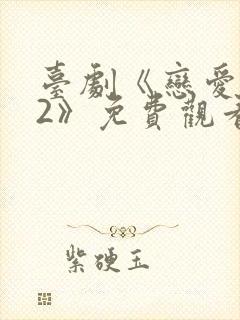 臺劇《戀愛
2》免費觀看
紫硬玉